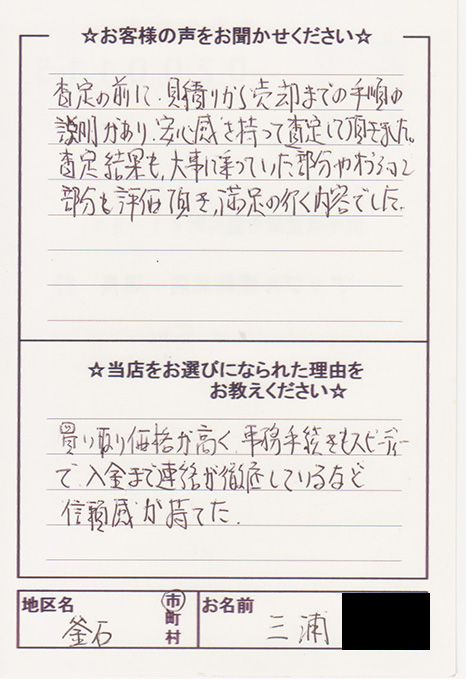 ☆お客様の声をお聞かせください☆
査定の前に、見積りから売却までの手順の
説明があり、安心感を持って査定して頂きました。
査定結果も、大事に乗っていた部分や
部分も評価頂き、満足の行く内容でした。
☆当店をお選びになられた理由を
お教えください☆
買い取り価格が高く、事務手続きもスピーディー
で、入金まで連絡が徹底しているなど
信頼感が持てた。
地区名
釜石
市
町
村
お名前
三浦